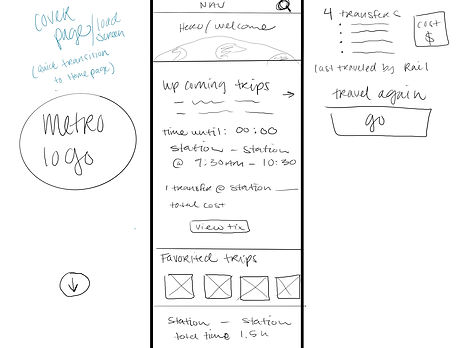 cover
page/load
screen
(quick transition
to home page)
metro
logo
NAV
Hero/welcome
upcoming trips
time until: 00:00
station - station
@ 7:30AM - 10:30
1 transfer @ station
total cost
view tix
Favorited trips
station - station
total time 1.5h
4 transfers
cost
$
last traveled by Rail
travel again
go